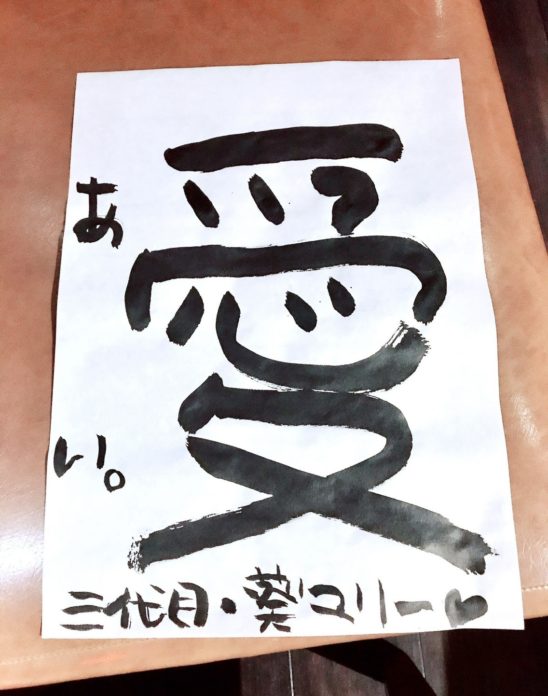 愛
あい。
三代目・葵マリー♥